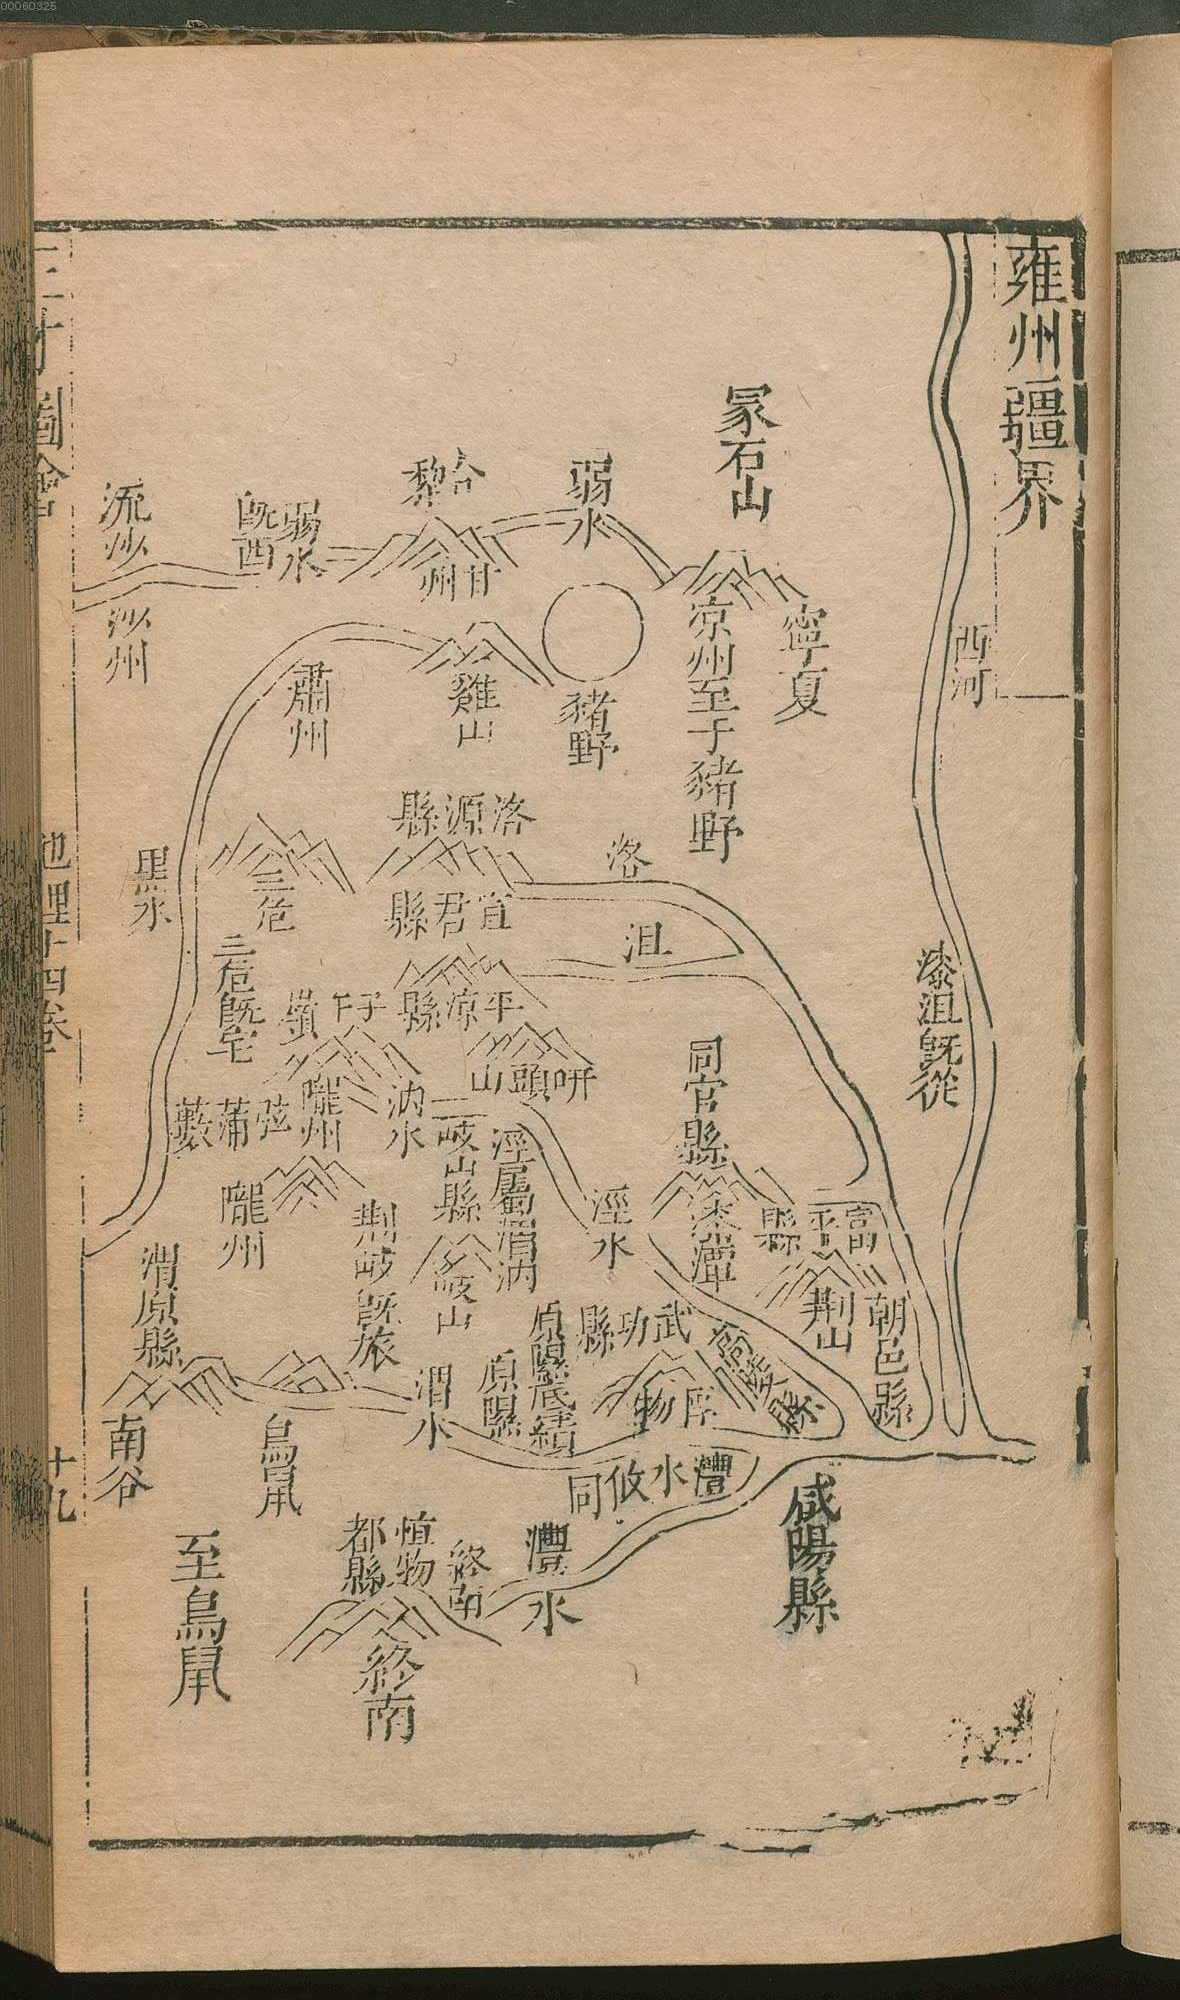 00060325
雍州疆界
西河
漆沮既從
冢石山
寧夏
涼州至于豬野
弱水
豬野
合黎
甘州
雞山
弱水既西
流沙
沙州
肅州
黑水
三危
三危既宅
洛源縣
宜君縣
洛
沮
平涼縣
山頭
子午嶺
隴州
弦蒲藪
隴州
汭水
岐山縣
岐山
涇屬渭汭
涇水
同官縣
富平縣
荆山
朝邑縣
武功縣
原隰底績
原隰
荆岐既旅
渭水
渭原縣
南谷
鳥鼠
至鳥鼠
灃水攸同
灃水
咸陽縣
終南
惇物
都縣
終南
三才圖會
地理十四卷
十九